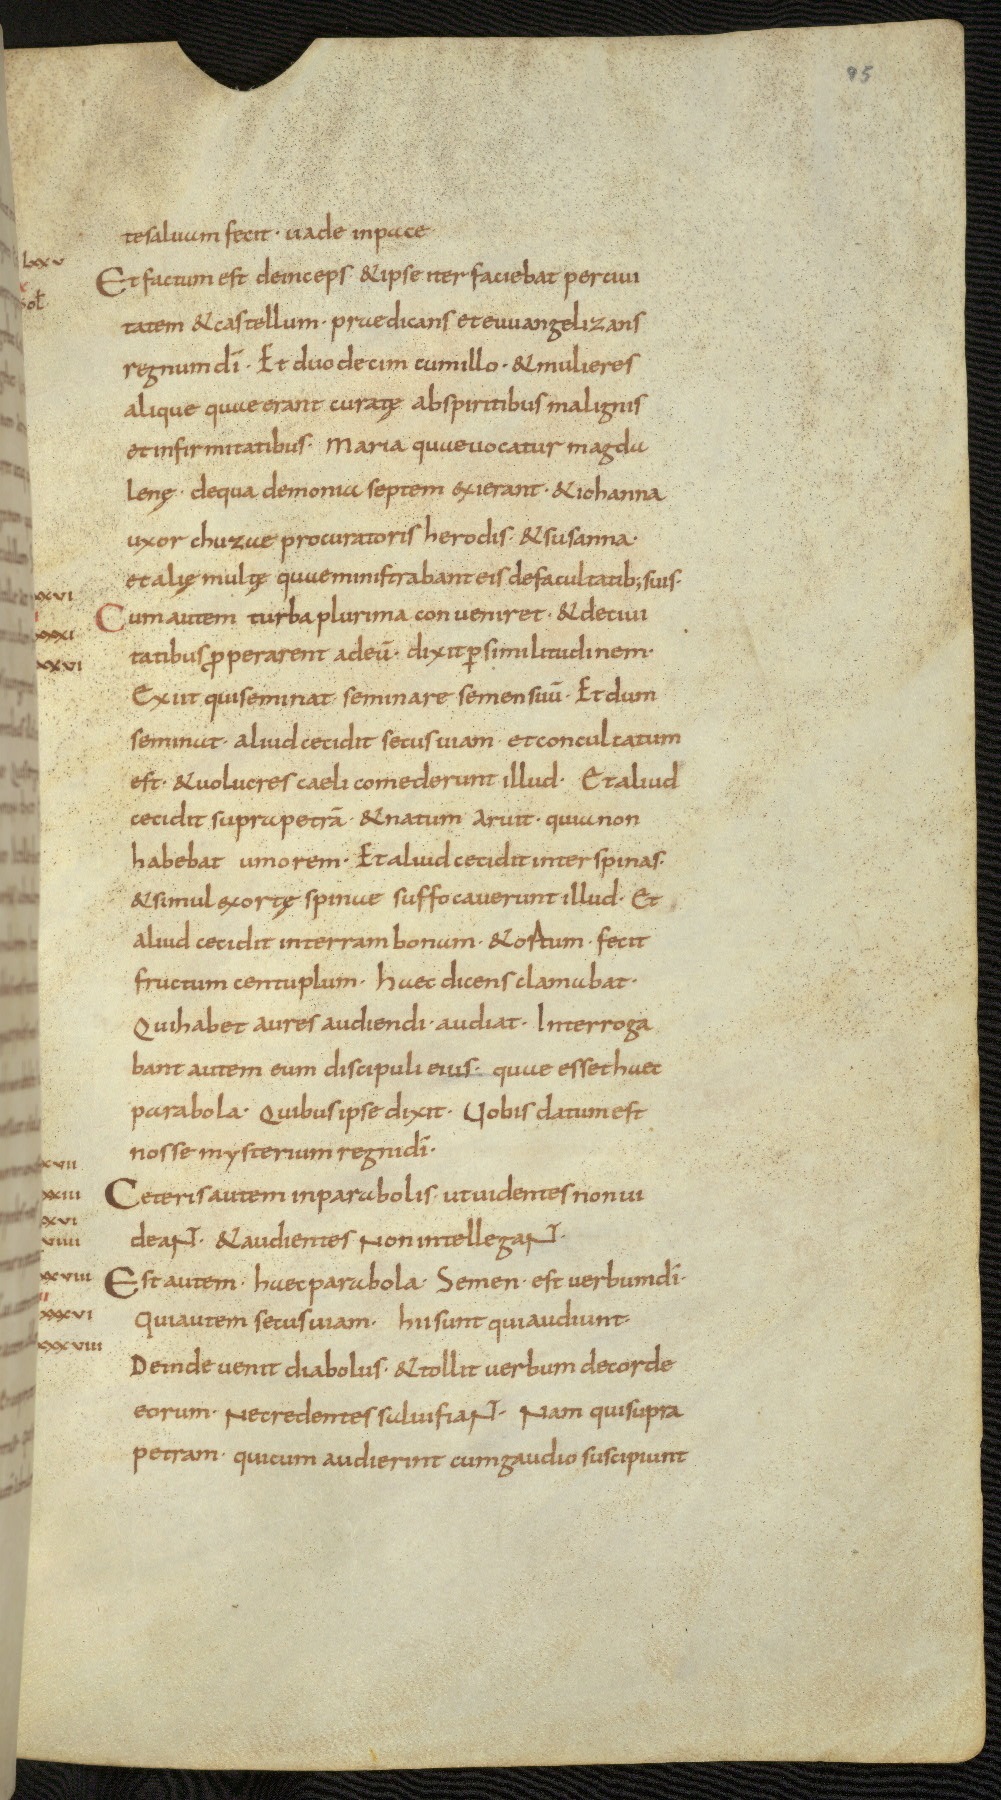 95
te saluum fecit · uade in pace
lxxv
Et factum est deinceps · & ipse iter faciebat per ciui
sol
tatem & castellum · praedicans et euuangelizans
regnum dī · Et duodecim cum illo · & mulieres
alique quae erant curatę ab spiritibus malignis
et infirmitatibus · Maria quae uocatur magda
lenę · de qua demonia septem exierant · & iohanna
uxor chuzae procuratoris herodis · & susanna ·
et alię multę quae ministrabant eis de facultatib; suis ·
xxvi
Cum autem turba plurima conueniret · & de ciui
xxxi
tatibus ꝓperarent ad eū · dixit ꝑ similitudinem ·
xxvi
Exiit qui seminat seminare semen suū · Et dum
seminat · aliud cecidit secus uiam · et conculcatum
est · & uolucres caeli comederunt illud · Et aliud
cecidit supra petrā · & natum aruit · quia non
habebat umorem · Et aliud cecidit inter spinas ·
& simul exortę spinae suffocauerunt illud · Et
aliud cecidit in terram bonam · & ortum · fecit
fructum centuplum · haec dicens clamabat ·
Qui habet aures audiendi · audiat · Interroga
bant autem eum discipuli eius · quae esset haec
parabola · Quibus ipse dixit · Uobis datum est
nosse mysterium regni dī ·
xvii
xxiii
Ceteris autem in parabolis · ut uidentes non ui
xvi
viiii
deant · & audientes non intellegant ·
xxviii
Est autem · haec parabola · Semen · est uerbum dī ·
xxxvi
Qui autem secus uiam · hii sunt qui audiunt ·
xxxviii
Deinde uenit diabolus · & tollit uerbum de corde
eorum · ne credentes salui fiant · Nam qui supra
petram · qui cum audierint cum gaudio suscipiunt